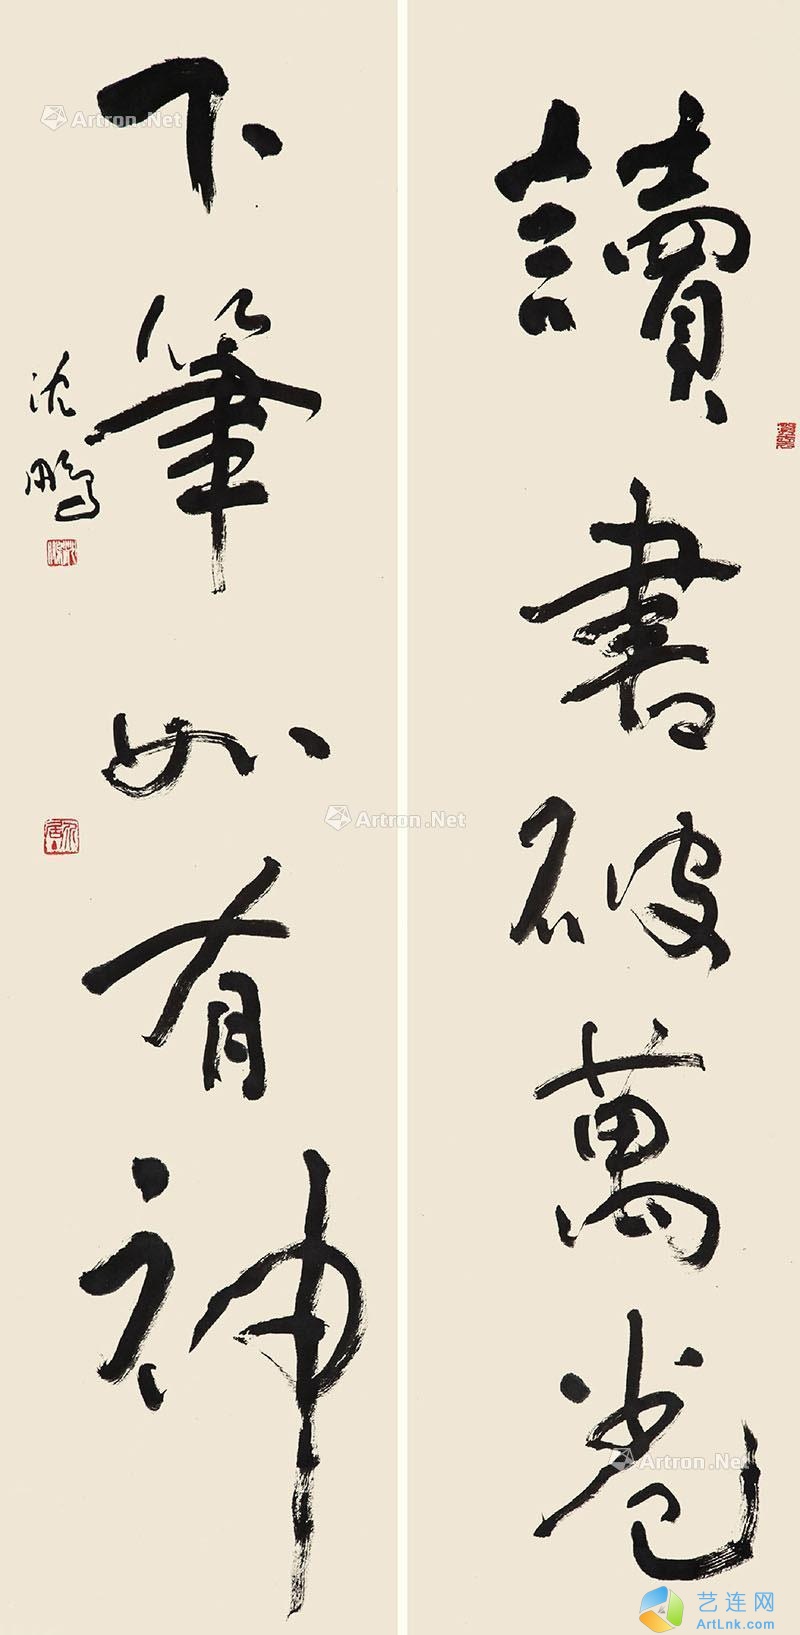 讀書破萬卷
下筆如有神
沈鵬
Artron.Net
Artron.Net
Artron.Net
艺连网
ArtLnk.com